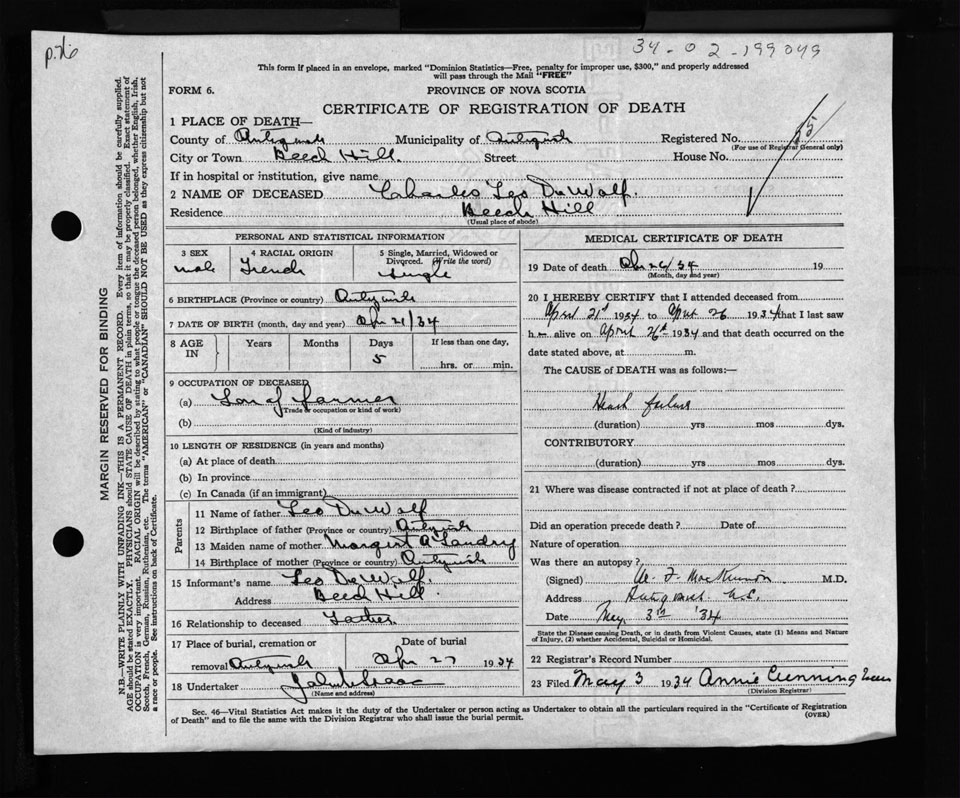 p.76
34-02-199049
This form if placed in an envelope, marked "Dominion Statistics—Free, penalty for improper use, $300," and properly addressed
will pass through the Mail "FREE"
FORM 6.
PROVINCE OF NOVA SCOTIA
CERTIFICATE OF REGISTRATION OF DEATH
1 PLACE OF DEATH—
County of Antigonish Municipality of Antigonish Registered No.
(For use of Registrar General only)
City or Town Beech Hill. Street House No.
If in hospital or institution, give name
2 NAME OF DECEASED Charles Leo DeWolf.
Residence Beech Hill
(Usual place of abode)
PERSONAL AND STATISTICAL INFORMATION
3 SEX 4 RACIAL ORIGIN 5 Single, Married, Widowed or
Divorced. (Write the word)
male French single
6 BIRTHPLACE (Province or country) Antigonish
7 DATE OF BIRTH (month, day and year) Apr 21/34
8 AGE IN Years Months Days If less than one day,
5 hrs. or min.
9 OCCUPATION OF DECEASED
(a) Son of farmer
(Trade or occupation or kind of work)
(b)
(Kind of industry)
10 LENGTH OF RESIDENCE (in years and months)
(a) At place of death
(b) In province
(c) In Canada (if an immigrant)
Parents
11 Name of father Leo DeWolf
12 Birthplace of father (Province or country) Antigonish
13 Maiden name of mother Margaret A Landry
14 Birthplace of mother (Province or country) Antigonish
15 Informant's name Leo DeWolf.
Address Beech Hill.
16 Relationship to deceased Father
17 Place of burial, cremation or Date of burial
removal Antigonish Apr 27 1934
18 Undertaker John Isaac
(Name and address)
MEDICAL CERTIFICATE OF DEATH
19 Date of death Apr 26/34 19
(Month, day and year)
20 I HEREBY CERTIFY that I attended deceased from
April 21st 1934 to April 26 1934 that I last saw
h alive on April 26th 1934 and that death occurred on the
date stated above, at m.
The CAUSE of DEATH was as follows:—
Heart failure
(duration) yrs mos dys.
CONTRIBUTORY
(duration) yrs mos dys.
21 Where was disease contracted if not at place of death?
Did an operation precede death? Date of
Nature of operation
Was there an autopsy?
(Signed) W. F. MacKinnon M.D.
Address Antigonish N.S.
Date May 3rd '34
State the Disease causing Death, or in death from Violent Causes, state (1) Means and Nature
of Injury, (2) whether Accidental, Suicidal or Homicidal.
22 Registrar's Record Number
23 Filed May 3 1934 Annie Cunningham
(Division Registrar)
Sec. 46—Vital Statistics Act makes it the duty of the Undertaker or person acting as Undertaker to obtain all the particulars required in the "Certificate of Registration
of Death" and to file the same with the Division Registrar who shall issue the burial permit.
(OVER)
MARGIN RESERVED FOR BINDING
N.B.—WRITE PLAINLY WITH UNFADING INK—THIS IS A PERMANENT RECORD. Every item of information should be carefully supplied.
AGE should be stated EXACTLY. PHYSICIANS should STATE CAUSE OF DEATH in plain terms, so that it may be properly classified. Exact statement of
OCCUPATION is very important. RACIAL ORIGIN will be described by stating to what people or tongue the deceased person belonged, whether English, Irish,
Scotch, French, German, Russian, Ruthenian, etc. The terms "AMERICAN" or "CANADIAN" SHOULD NOT BE USED as they express citizenship but not
a race or people. See instructions on back of Certificate.